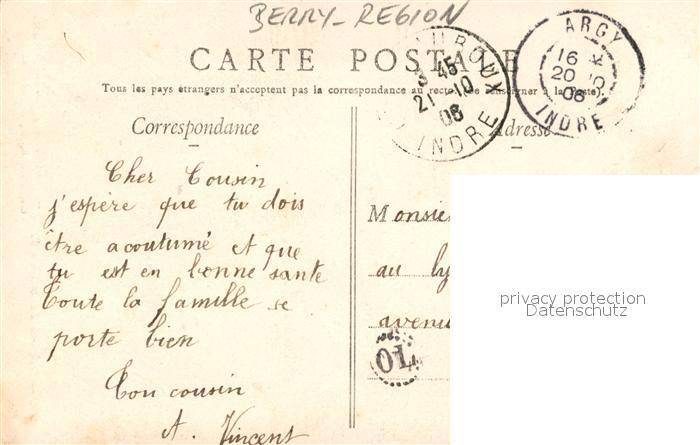 BERRY-REGION
CARTE POSTALE
Tous les pays étrangers n'acceptent pas la correspondance au recto (se renseigner à la Poste).
ARGY
16
20 10
06
INDRE
3 45
21 10
06
INDRE
Correspondance
Adresse
Cher Cousin
j'espère que tu dois
être acoutumé et que
tu est en bonne sante
Toute la famille se
porte bien
Ton cousin
A. Vincent
Monsie
au ly
avenu
OL
privacy protection
Datenschutz